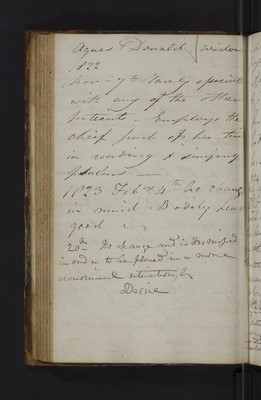 Agnes Donald / widow
1822
rarely speaks
with any of the other
patients - Employs the
chief part of her time
in reading & singing
psalms -
1823 Feby 4th No change
in mind - Bodily
good
20th No change and is dismissed
in order to be placed in a more
economical situation